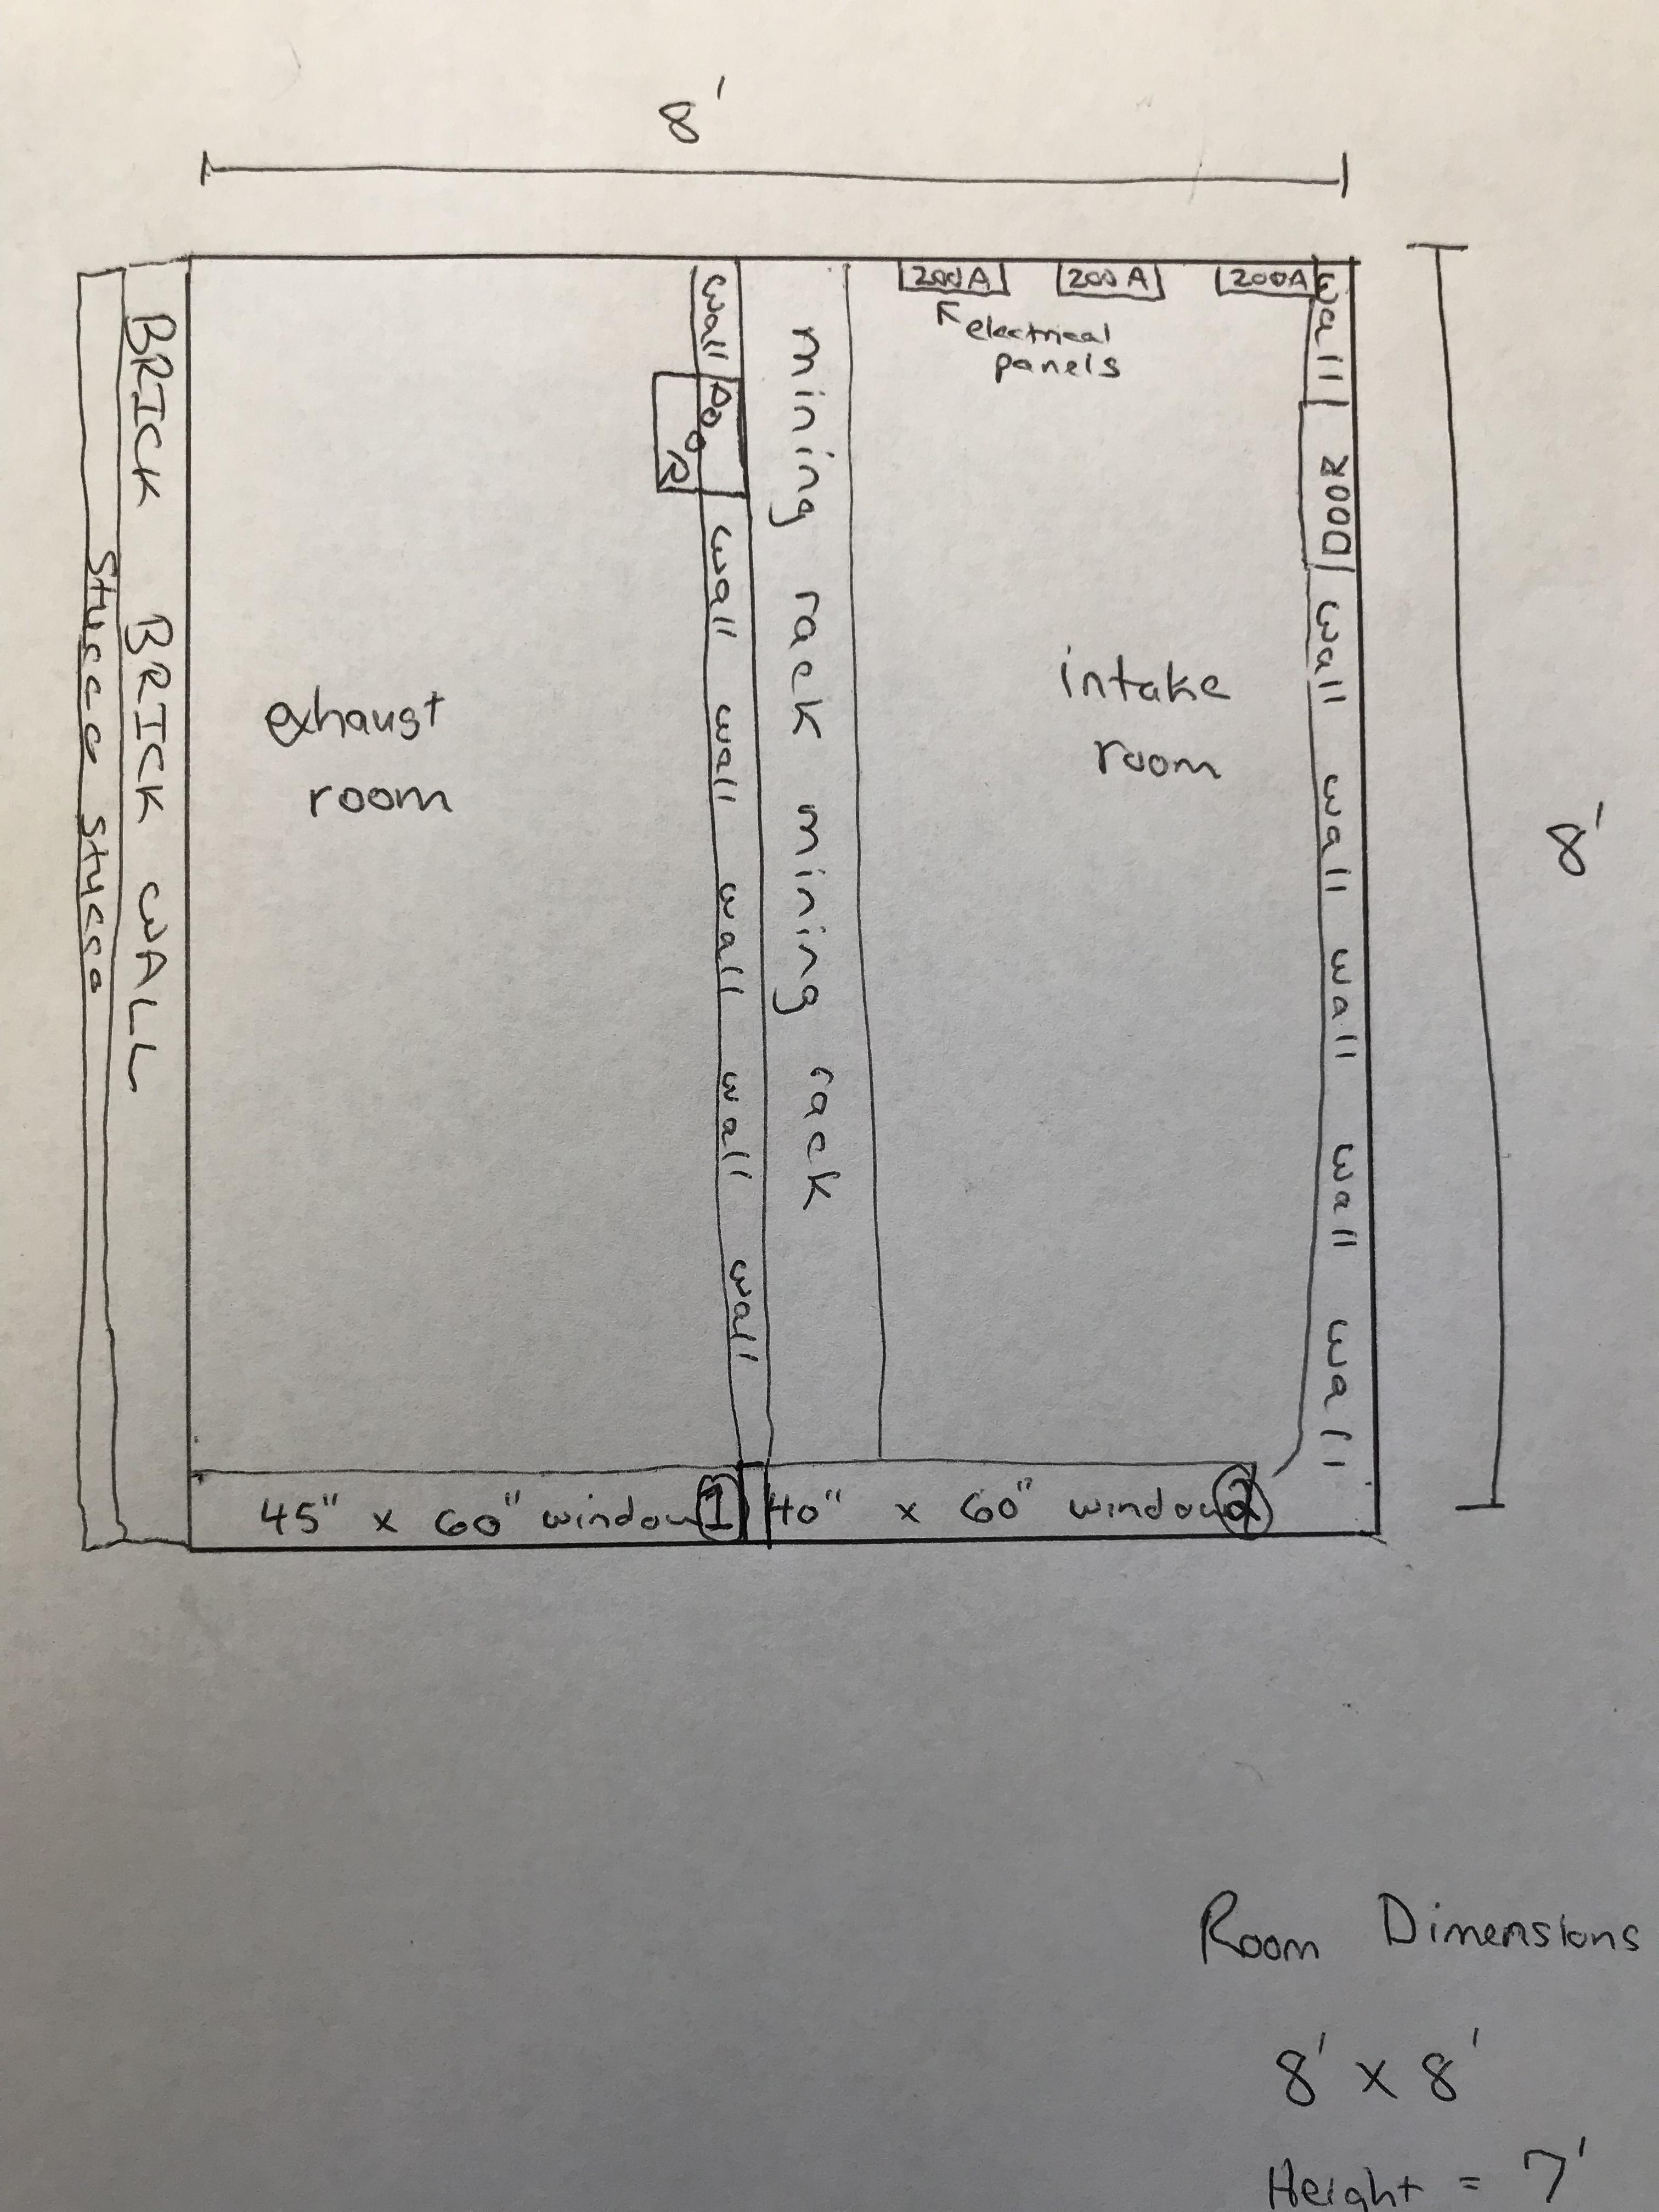 8'
200A 200A 200A
electrical
panels
wall
DOOR
wall wall wall wall wall
mining rack mining rack
wall
DOOR
wall wall wall wall wall
BRICK BRICK WALL
Stucco Stucco
exhaust
room
intake
room
8'
45" x 60" window 1
40" x 60" window 2
Room Dimensions
8' x 8'
Height = 7'